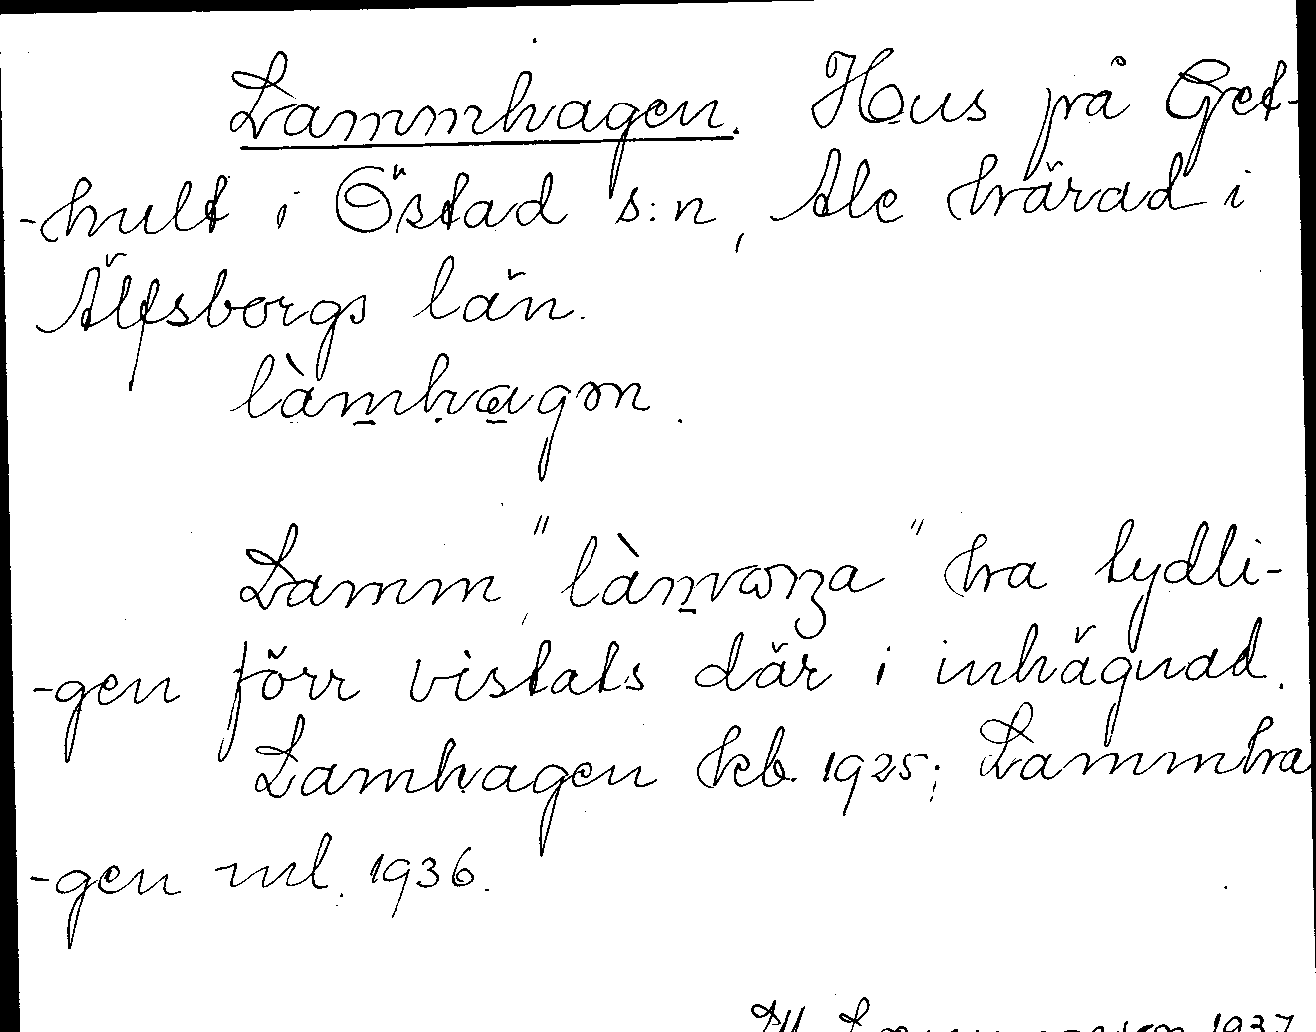 Lammhagen. Hus på Get-
-hult i Östad s:n, Ale härad i
Älfsborgs län.
làmhagən.
Lamm, "làmvɷŋa" ha tydli-
-gen förr vistats där i inhägnad.
Lamhagen kb. 1925; Lammha
-gen ml. 1936.
1937